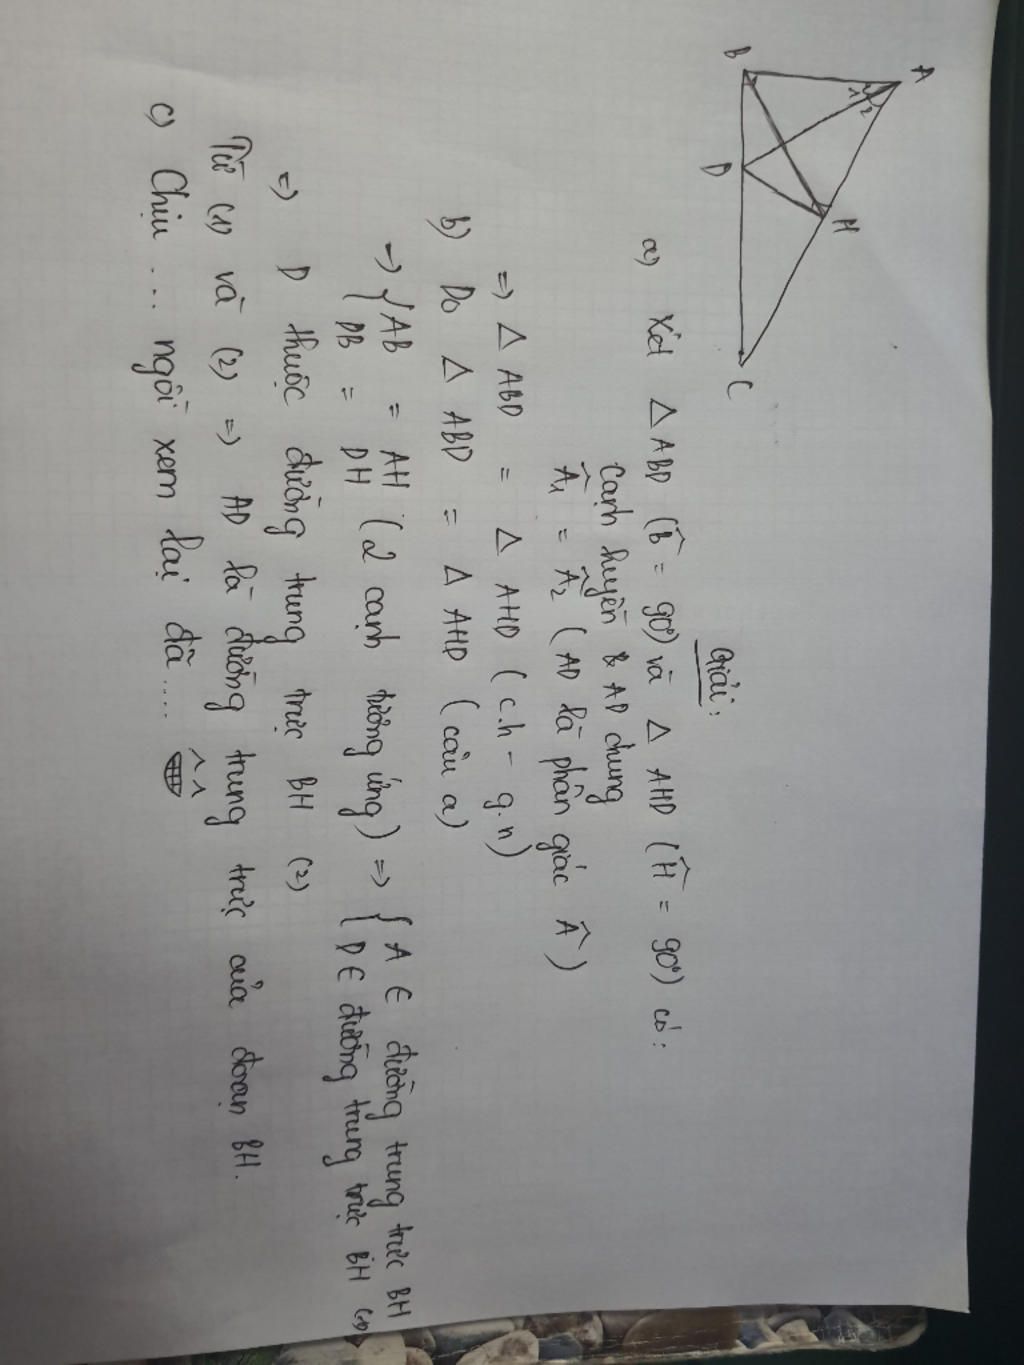 A
B
1
2
D
H
C
Giải:
a) Xét △ ABD (B̂ = 90°) và △ AHD (Ĥ = 90°) có:
Cạnh huyền AD chung
Â1 = Â2 (AD là phân giác Â)
=> △ ABD = △ AHD (c.h - g.n)
b) Do △ ABD = △ AHD (câu a)
=> { AB = AH (2 cạnh tương ứng) => { A ∈ đường trung trực BH
DB = DH D ∈ đường trung trực BH (1)
=> D thuộc đường trung trực BH (2)
Từ (1) và (2) => AD là đường trung trực của đoạn BH.
c) Chịu ... ngồi xem lại đã....